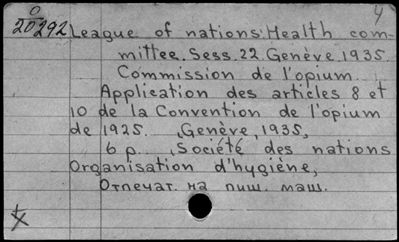 4
0
20292
League of nations. Health com-
mittee. Sess. 22. Genève. 1935.
Commission de l'opium.
Application des articles 8 et
10 de la Convention de l'opium
de 1925. Genève, 1935,
6 p. Société des nations
Organisation d'hygiène,
Отпечат. на пиш. маш.